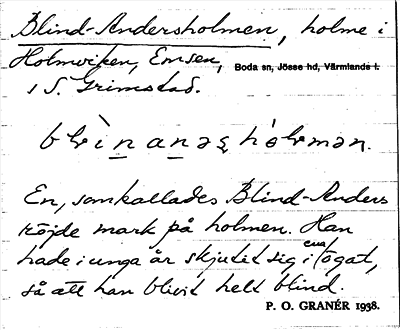 Blind-Andersholmen, holme i
Holmviken, Emsen, Boda sn, Jösse hd, Värmlands l.
i S. Grimstad.
En, som kallades Blind-Anders
röjde mark på holmen. Han
hade i unga år skjutit sig i ena ögat,
så att han blivit helt blind.
P. O. GRANÉR 1938.